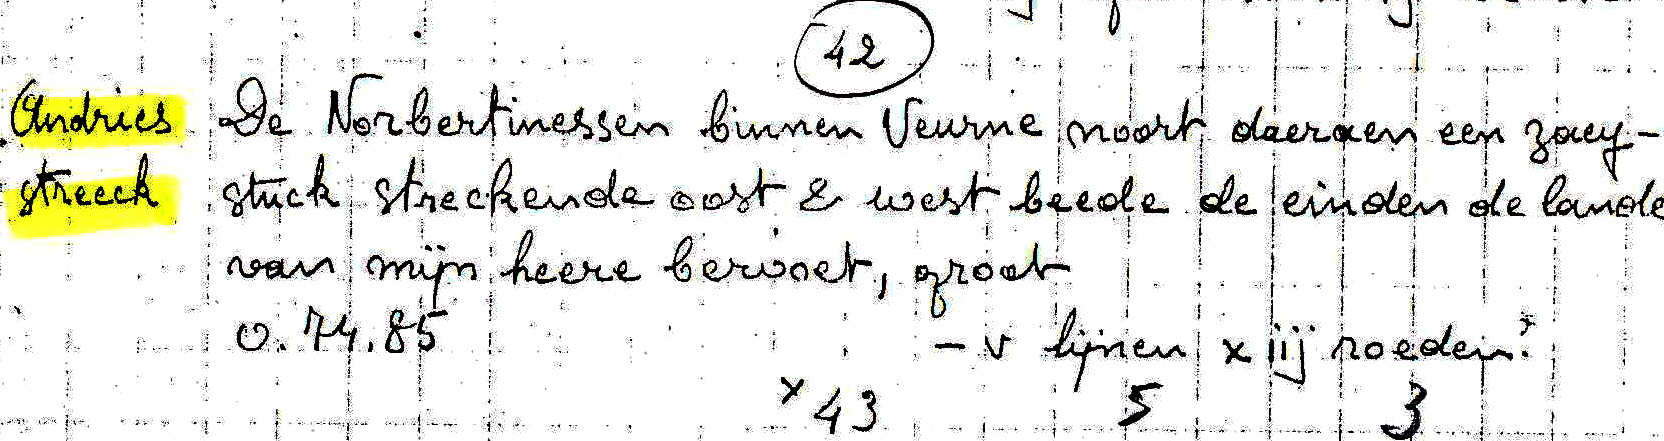 42
Andries De Norbertinessen binnen Veurne noort daeraen een zaey-
streeck stuck streckende oost & west beede de einden de lande
van mijn heere bervoet, groot
0.74.85 - v lijnen x iij roeden?
x 43 5 3